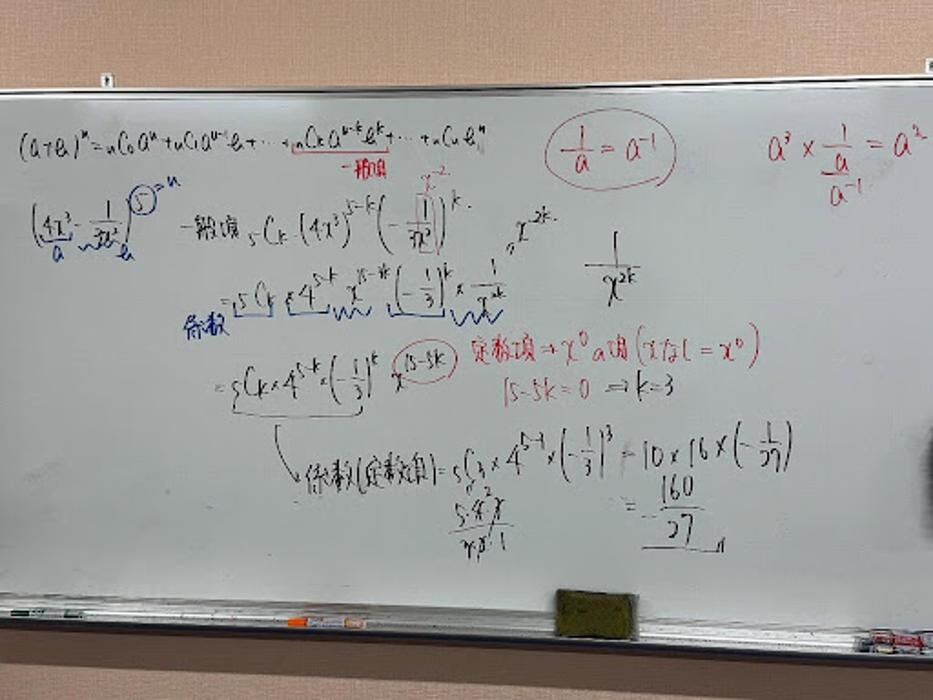 (a+b)ⁿ = ₙC₀aⁿ + ₙC₁aⁿ⁻¹b + … + ₙCₖaⁿ⁻ᵏbᵏ + … + ₙCₙbⁿ
一般項
1/a = a⁻¹
a³ × 1/a = a²
a⁻¹
(4x³ - 1/3x²)⁵ = n
a b
x⁻²
一般項 ₅Cₖ・(4x³)⁵⁻ᵏ(-1/3x²)ᵏ
x⁻²ᵏ
= ₅Cₖ × 4⁵⁻ᵏ x¹⁵⁻³ᵏ (-1/3)ᵏ × 1/x²ᵏ
1/x²ᵏ
係数
= ₅Cₖ × 4⁵⁻ᵏ × (-1/3)ᵏ x¹⁵⁻⁵ᵏ
定数項 → x⁰の項 (xなし = x⁰)
15-5k = 0 ⇒ k = 3
係数(定数項) = ₅C₃ × 4⁵⁻³ × (-1/3)³ = 10 × 16 × (-1/27)
= -160/27